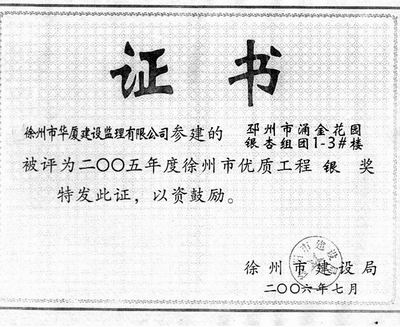 证书
徐州市华厦建设监理有限公司参建的 邳州市涌金花园
银杏组团1-3#楼
被评为二〇〇五年度徐州市优质工程 银 奖
特发此证，以资鼓励。
徐州市建设局
二〇〇六年七月